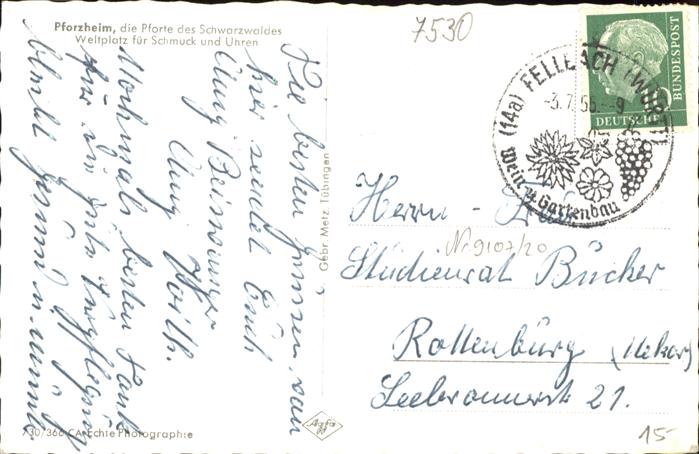 Pforzheim, die Pforte des Schwarzwaldes
Weltplatz für Schmuck und Uhren
7530
DEUTSCHE
BUNDESPOST
(14a) FELLBACH (WÜRTT)
-3.7.55.--9
Wein u. Gartenbau
Die besten Grüssen von
hier sendet Euch
Anny
Anny
Nochmals besten Dank
für die gute Verpflegung
bleibt gesund u. munter
Gebr. Metz, Tübingen
Herrn - Frau
Nr. 9107/20
Studienrat Bücher
Rottenburg (Nekar)
21.
Agfa
730/366 CA Echte Photographie
15-